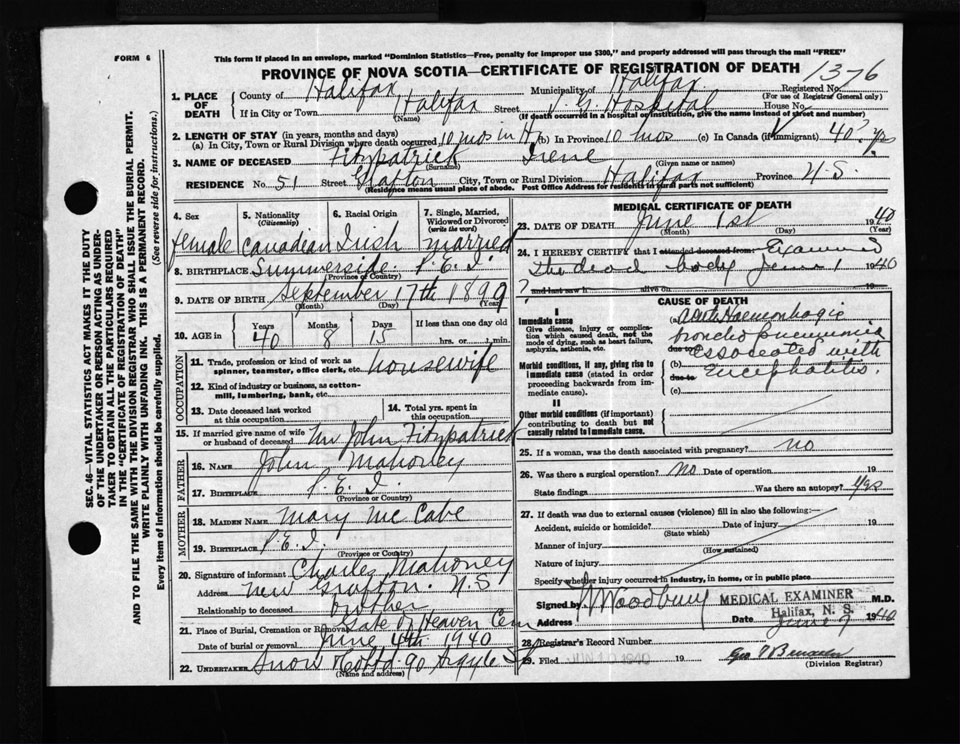 FORM 6
This form if placed in an envelope, marked "Dominion Statistics—Free, penalty for improper use $300," and properly addressed will pass through the mail "FREE"
PROVINCE OF NOVA SCOTIA—CERTIFICATE OF REGISTRATION OF DEATH
1376
1. PLACE OF DEATH
County of Halifax Municipality of Halifax Registered No.
(For use of Registrar General only)
If in City or Town Halifax Street V. G. Hospital House No.
(Name) (If death occurred in a hospital or institution, give the name instead of street and number)
2. LENGTH OF STAY (in years, months and days)
(a) In City, Town or Rural Division where death occurred 10 mos in H (b) In Province 10 mos (c) In Canada (if immigrant) 40? yrs
3. NAME OF DECEASED Fitzpatrick Irene
(Surname) (Given name or names)
RESIDENCE No. 51 Street Grafton City, Town or Rural Division Halifax Province N.S.
(Residence means usual place of abode. Post Office Address for residents in rural parts not sufficient)
4. Sex
female
5. Nationality (Citizenship)
Canadian
6. Racial Origin
Irish
7. Single, Married, Widowed or Divorced (write the word)
married
8. BIRTHPLACE Summerside P.E.I.
(Province or Country)
9. DATE OF BIRTH September 17th 1899
(Month) (Day) (Year)
10. AGE in Years Months Days If less than one day old
40 8 15 hrs. or min.
OCCUPATION
11. Trade, profession or kind of work as spinner, teamster, office clerk, etc. housewife
12. Kind of industry or business, as cotton-mill, lumbering, bank, etc.
13. Date deceased last worked at this occupation
14. Total yrs. spent in this occupation
15. If married give name of wife or husband of deceased Mr John Fitzpatrick
FATHER
16. NAME John Mahoney
17. BIRTHPLACE P.E.I.
(Province or Country)
MOTHER
18. MAIDEN NAME Mary McCabe
19. BIRTHPLACE P.E.I.
(Province or Country)
20. Signature of informant Charles Mahoney
Address New Grafton. N.S
Relationship to deceased brother
21. Place of Burial, Cremation or Removal Gate of Heaven Cem
Date of burial or removal June 4th 1940
22. UNDERTAKER Snow & Co Ltd 90 Argyle St
(Name and address)
MEDICAL CERTIFICATE OF DEATH
23. DATE OF DEATH June 1st 1940
(Month) (Day) (Year)
24. I HEREBY CERTIFY that I attended deceased from Examined
the dead body June 1 1940
? and last saw h alive on 19
CAUSE OF DEATH
I
Immediate cause
Give disease, injury or complication which caused death, not the mode of dying, such as heart failure, asphyxia, asthenia, etc.
Morbid conditions, if any, giving rise to immediate cause (stated in order proceeding backwards from immediate cause).
II
Other morbid conditions (if important) contributing to death but not causally related to immediate cause.
(a) Acute Haemorrhagic
broncho pneumonia
due to associated with
(b) Encephalitis.
due to
(c)
25. If a woman, was the death associated with pregnancy? no
26. Was there a surgical operation? no Date of operation 19
State findings Was there an autopsy? yes
27. If death was due to external causes (violence) fill in also the following:—
Accident, suicide or homicide? Date of injury 19
(State which)
Manner of injury
(How sustained)
Nature of injury
Specify whether injury occurred in industry, in home, or in public place
Signed by Woodbury MEDICAL EXAMINER M.D.
Halifax, N. S.
Address Date June 9 1940
28. Registrar's Record Number
29. Filed JUN 10 1940 19
(Division Registrar)
SEC. 46—VITAL STATISTICS ACT MAKES IT THE DUTY
OF THE UNDERTAKER OR PERSON ACTING AS UNDER-
TAKER TO OBTAIN ALL THE PARTICULARS REQUIRED
IN THE "CERTIFICATE OF REGISTRATION OF DEATH"
AND TO FILE THE SAME WITH THE DIVISION REGISTRAR WHO SHALL ISSUE THE BURIAL PERMIT.
WRITE PLAINLY WITH UNFADING INK. THIS IS A PERMANENT RECORD.
Every item of information should be carefully supplied. (See reverse side for instructions.)